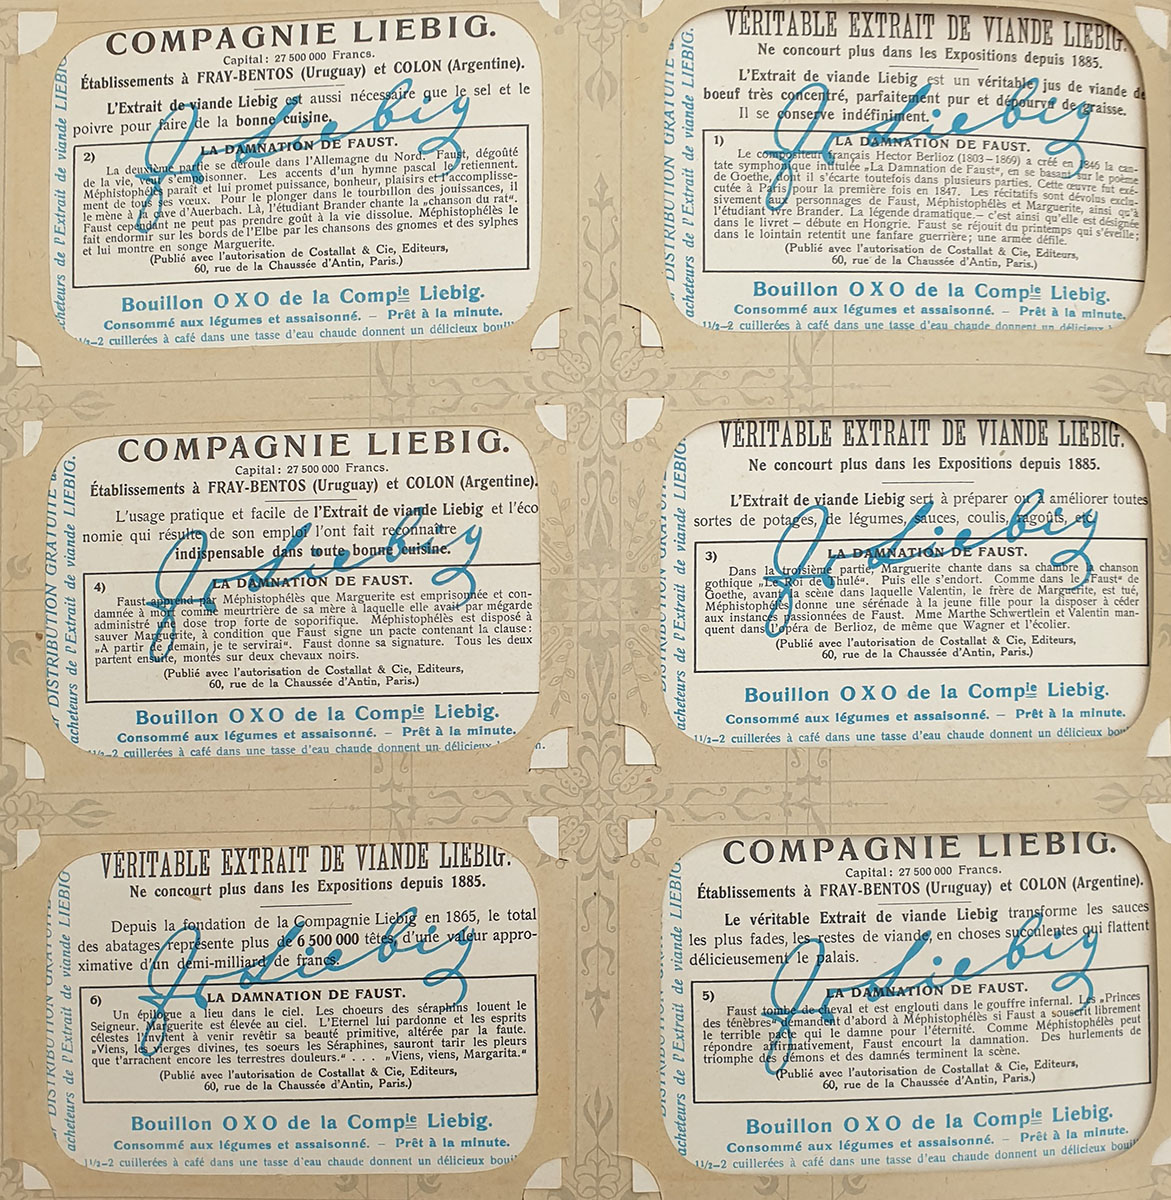 COMPAGNIE LIEBIG.
Capital: 27 500 000 Francs.
Établissements à FRAY-BENTOS (Uruguay) et COLON (Argentine).
L'Extrait de viande Liebig est aussi nécessaire que le sel et le
poivre pour faire de la bonne cuisine.
2) LA DAMNATION DE FAUST.
La deuxième partie se déroule dans l'Allemagne du Nord. Faust, dégoûté
de la vie, veut s'empoisonner. Les accents d'un hymne pascal le retiennent.
Méphistophélès paraît et lui promet puissance, bonheur, plaisirs et l'accomplisse-
ment de tous ses vœux. Pour le plonger dans le tourbillon des jouissances, il
le mène à la cave d'Auerbach. Là, l'étudiant Brander chante la „chanson du rat“.
Faust cependant ne peut pas prendre goût à la vie dissolue. Méphistophélès le
fait endormir sur les bords de l'Elbe par les chansons des gnomes et des sylphes
et lui montre en songe Marguerite.
(Publié avec l'autorisation de Costallat & Cie, Editeurs,
60, rue de la Chaussée d'Antin, Paris.)
Bouillon OXO de la Compie Liebig.
Consommé aux légumes et assaisonné. – Prêt à la minute.
1½–2 cuillerées à café dans une tasse d'eau chaude donnent un délicieux boui
acheteurs de l'Extrait de viande LIEBIG
J v Liebig
VÉRITABLE EXTRAIT DE VIANDE LIEBIG.
Ne concourt plus dans les Expositions depuis 1885.
L'Extrait de viande Liebig est un véritable jus de viande de
boeuf très concentré, parfaitement pur et dépourvu de graisse.
Il se conserve indéfiniment.
1) LA DAMNATION DE FAUST.
Le compositeur français Hector Berlioz (1803–1869) a créé en 1846 la can-
tate symphonique intitulée „La Damnation de Faust“, en se basant sur le poème
de Goethe, dont il s'écarte toutefois dans plusieurs parties. Cette œuvre fut exé-
cutée à Paris pour la première fois en 1847. Les récitatifs sont dévolus exclu-
sivement aux personnages de Faust, Méphistophélès et Marguerite, ainsi qu'à
l'étudiant ivre Brander. La légende dramatique – c'est ainsi qu'elle est désignée
dans le livret – débute en Hongrie. Faust se réjouit du printemps qui s'éveille;
dans le lointain retentit une fanfare guerrière; une armée défile.
(Publié avec l'autorisation de Costallat & Cie, Editeurs,
60, rue de la Chaussée d'Antin, Paris.)
Bouillon OXO de la Compie Liebig.
Consommé aux légumes et assaisonné. – Prêt à la minute.
1½–2 cuillerées à café dans une tasse d'eau chaude donnent un délicieux
DISTRIBUTION GRATUITE
acheteurs de l'Extrait de viande LIEBIG.
J v Liebig
COMPAGNIE LIEBIG.
Capital: 27 500 000 Francs.
Établissements à FRAY-BENTOS (Uruguay) et COLON (Argentine).
L'usage pratique et facile de l'Extrait de viande Liebig et l'éco
nomie qui résulte de son emploi l'ont fait reconnaître
indispensable dans toute bonne cuisine.
4) LA DAMNATION DE FAUST.
Faust apprend par Méphistophélès que Marguerite est emprisonnée et con-
damnée à mort comme meurtrière de sa mère à laquelle elle avait par mégarde
administré une dose trop forte de soporifique. Méphistophélès est disposé à
sauver Marguerite, à condition que Faust signe un pacte contenant la clause:
„A partir de demain, je te servirai“. Faust donne sa signature. Tous les deux
partent ensuite, montés sur deux chevaux noirs.
(Publié avec l'autorisation de Costallat & Cie, Editeurs,
60, rue de la Chaussée d'Antin, Paris.)
Bouillon OXO de la Compie Liebig.
Consommé aux légumes et assaisonné. – Prêt à la minute.
1½–2 cuillerées à café dans une tasse d'eau chaude donnent un délicieux n.
DISTRIBUTION GRATUITE
acheteurs de l'Extrait de viande LIEBIG.
J v Liebig
VÉRITABLE EXTRAIT DE VIANDE LIEBIG.
Ne concourt plus dans les Expositions depuis 1885.
L'Extrait de viande Liebig sert à préparer ou à améliorer toutes
sortes de potages, de légumes, sauces, coulis, ragoûts, etc.
3) LA DAMNATION DE FAUST.
Dans la troisième partie, Marguerite chante dans sa chambre la chanson
gothique „Le Roi de Thulé“. Puis elle s'endort. Comme dans le „Faust“ de
Goethe, avant la scène dans laquelle Valentin, le frère de Marguerite, est tué,
Méphistophélès donne une sérénade à la jeune fille pour la disposer à céder
aux instances passionnées de Faust. Mme Marthe Schwertlein et Valentin man-
quent dans l'opéra de Berlioz, de même que Wagner et l'écolier.
(Publié avec l'autorisation de Costallat & Cie, Editeurs,
60, rue de la Chaussée d'Antin, Paris.)
Bouillon OXO de la Compie Liebig.
Consommé aux légumes et assaisonné. – Prêt à la minute.
1½–2 cuillerées à café dans une tasse d'eau chaude donnent un délicieux bou
DISTRIBUTION GRATUITE
acheteurs de l'Extrait de viande LIEBIG
J v Liebig
VÉRITABLE EXTRAIT DE VIANDE LIEBIG.
Ne concourt plus dans les Expositions depuis 1885.
Depuis la fondation de la Compagnie Liebig en 1865, le total
des abatages représente plus de 6 500 000 têtes, d'une valeur appro-
ximative d'un demi-milliard de francs.
6) LA DAMNATION DE FAUST.
Un épilogue a lieu dans le ciel. Les choeurs des séraphins louent le
Seigneur. Marguerite est élevée au ciel. L'Eternel lui pardonne et les esprits
célestes l'invitent à venir revêtir sa beauté primitive, altérée par la faute.
„Viens, les vierges divines, tes soeurs les Séraphines, sauront tarir les pleurs
que t'arrachent encore les terrestres douleurs.“ . . . . „Viens, viens, Margarita.“
(Publié avec l'autorisation de Costallat & Cie, Editeurs,
60, rue de la Chaussée d'Antin, Paris.)
Bouillon OXO de la Compie Liebig.
Consommé aux légumes et assaisonné. – Prêt à la minute.
1½–2 cuillerées à café dans une tasse d'eau chaude donnent un délicieux boui
DISTRIBUTION GRATUITE
acheteurs de l'Extrait de viande LIEBIG
J v Liebig
COMPAGNIE LIEBIG.
Capital: 27 500 000 Francs.
Établissements à FRAY-BENTOS (Uruguay) et COLON (Argentine).
Le véritable Extrait de viande Liebig transforme les sauces
les plus fades, les restes de viande, en choses succulentes qui flattent
délicieusement le palais.
5) LA DAMNATION DE FAUST.
Faust tombe de cheval et est englouti dans le gouffre infernal. Les „Princes
des ténèbres“ demandent d'abord à Méphistophélès si Faust a souscrit librement
le terrible pacte qui le damne pour l'éternité. Comme Méphistophélès peut
répondre affirmativement, Faust encourt la damnation. Des hurlements de
triomphe des démons et des damnés terminent la scène.
(Publié avec l'autorisation de Costallat & Cie, Editeurs,
60, rue de la Chaussée d'Antin, Paris.)
Bouillon OXO de la Compie Liebig.
Consommé aux légumes et assaisonné. – Prêt à la minute.
1½–2 cuillerées à café dans une tasse d'eau chaude donnent un délicieux boui
DISTRIBUTION GRATUITE
acheteurs de l'Extrait de viande LIEBIG
J v Liebig